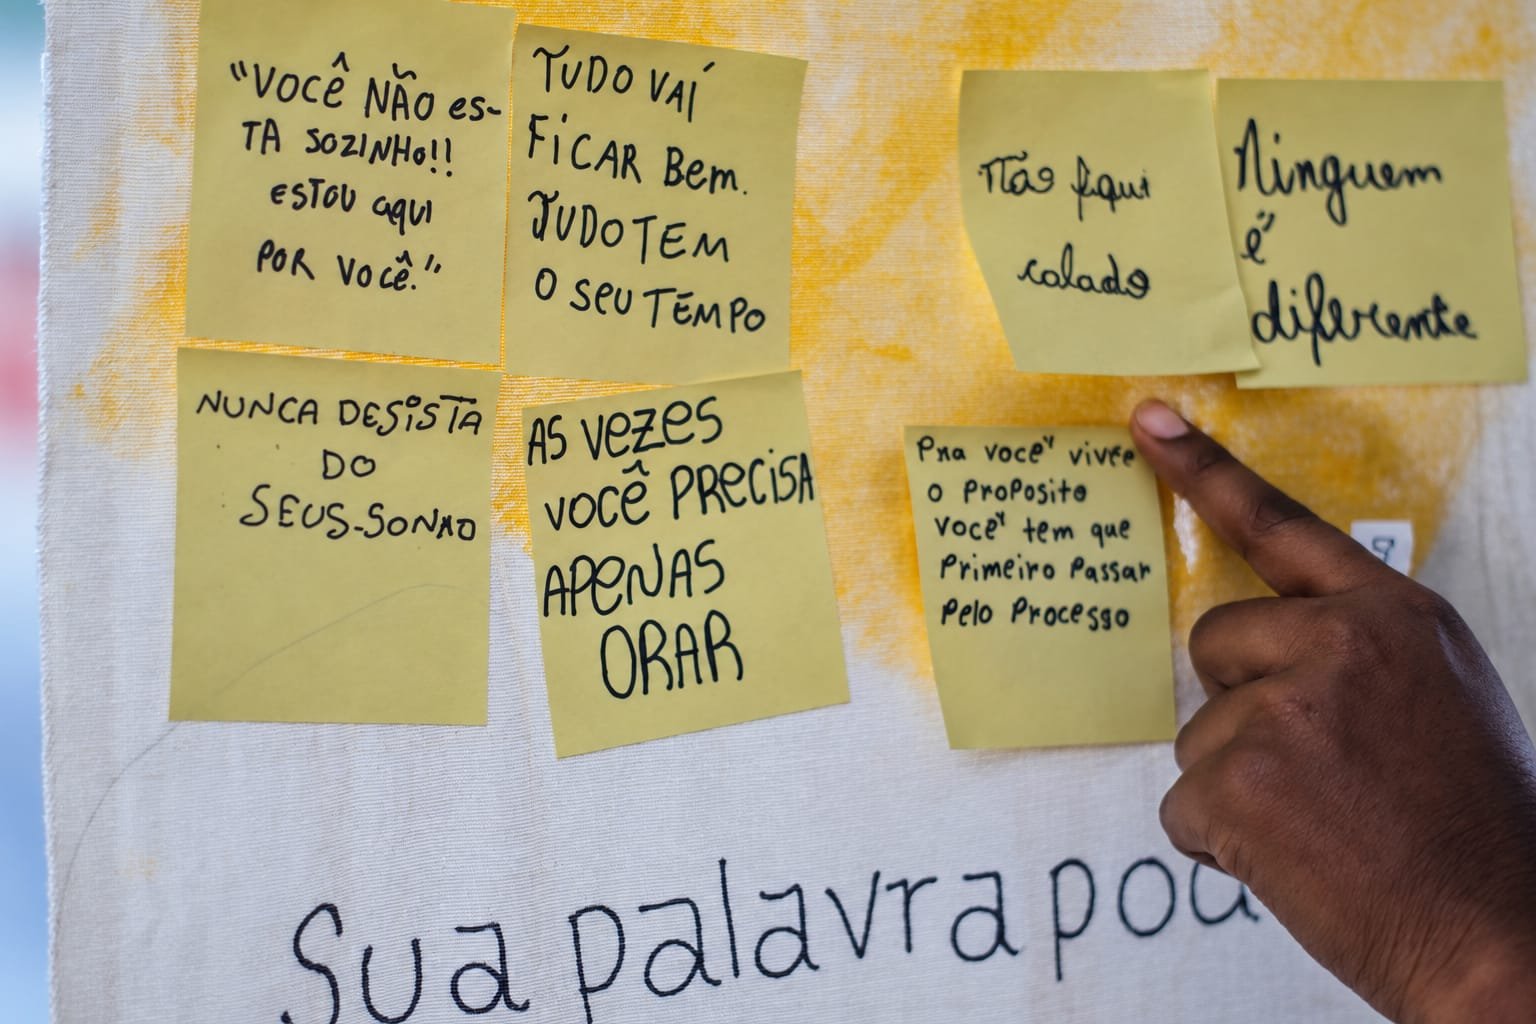 "VOCÊ NÃO ES-
TA SOZINHO!!
ESTOU AQUI
POR VOCÊ."
TUDO VAÍ
FICAR BEM.
TUDO TEM
O SEU TEMPO
Não fiqui
calado
Ninguem
é
diferente
NUNCA DESISTA
DO
SEUS-SONHO
AS VEZES
VOCÊ PRECISA
APENAS
ORAR
Pra você vivee
o proposito
você tem que
Primeiro Passar
Pelo Processo
Sua palavra pod